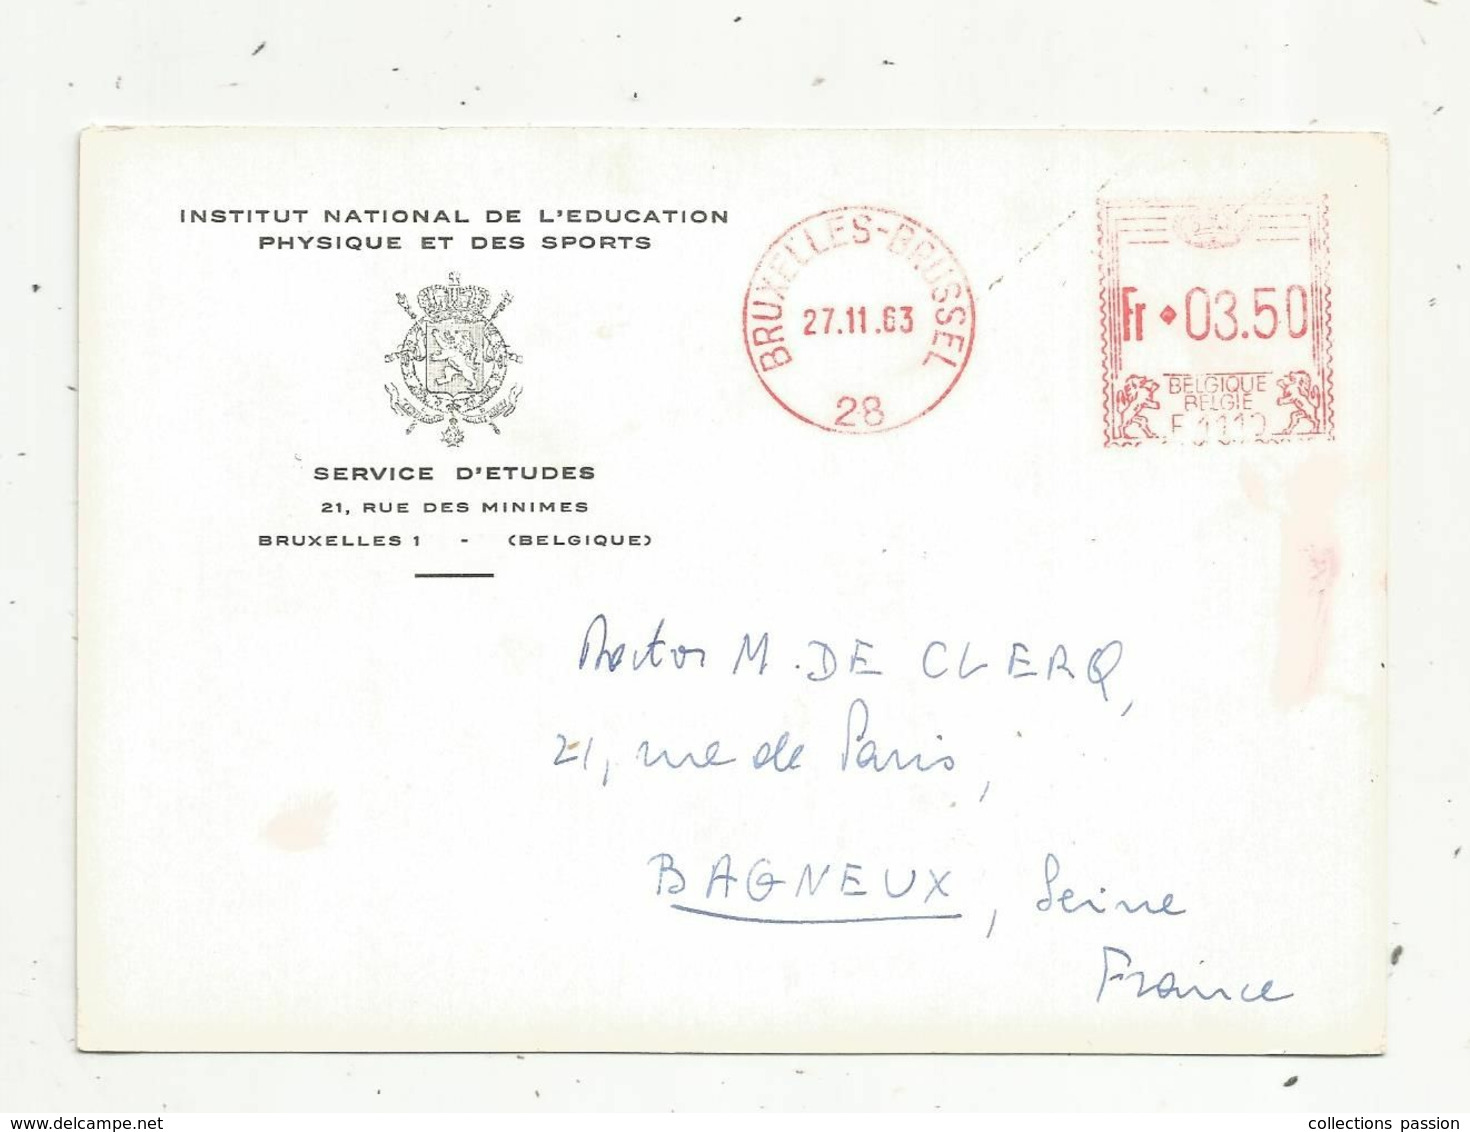 INSTITUT NATIONAL DE L'EDUCATION
PHYSIQUE ET DES SPORTS
SERVICE D'ETUDES
21, RUE DES MINIMES
BRUXELLES 1 - (BELGIQUE)
BRUXELLES-BRUSSEL
27.11.63
28
Fr 03.50
BELGIQUE
BELGIE
M. DE CLERQ,
21, rue de Paris,
BAGNEUX, Seine
France
www.delcampe.net
collections passion